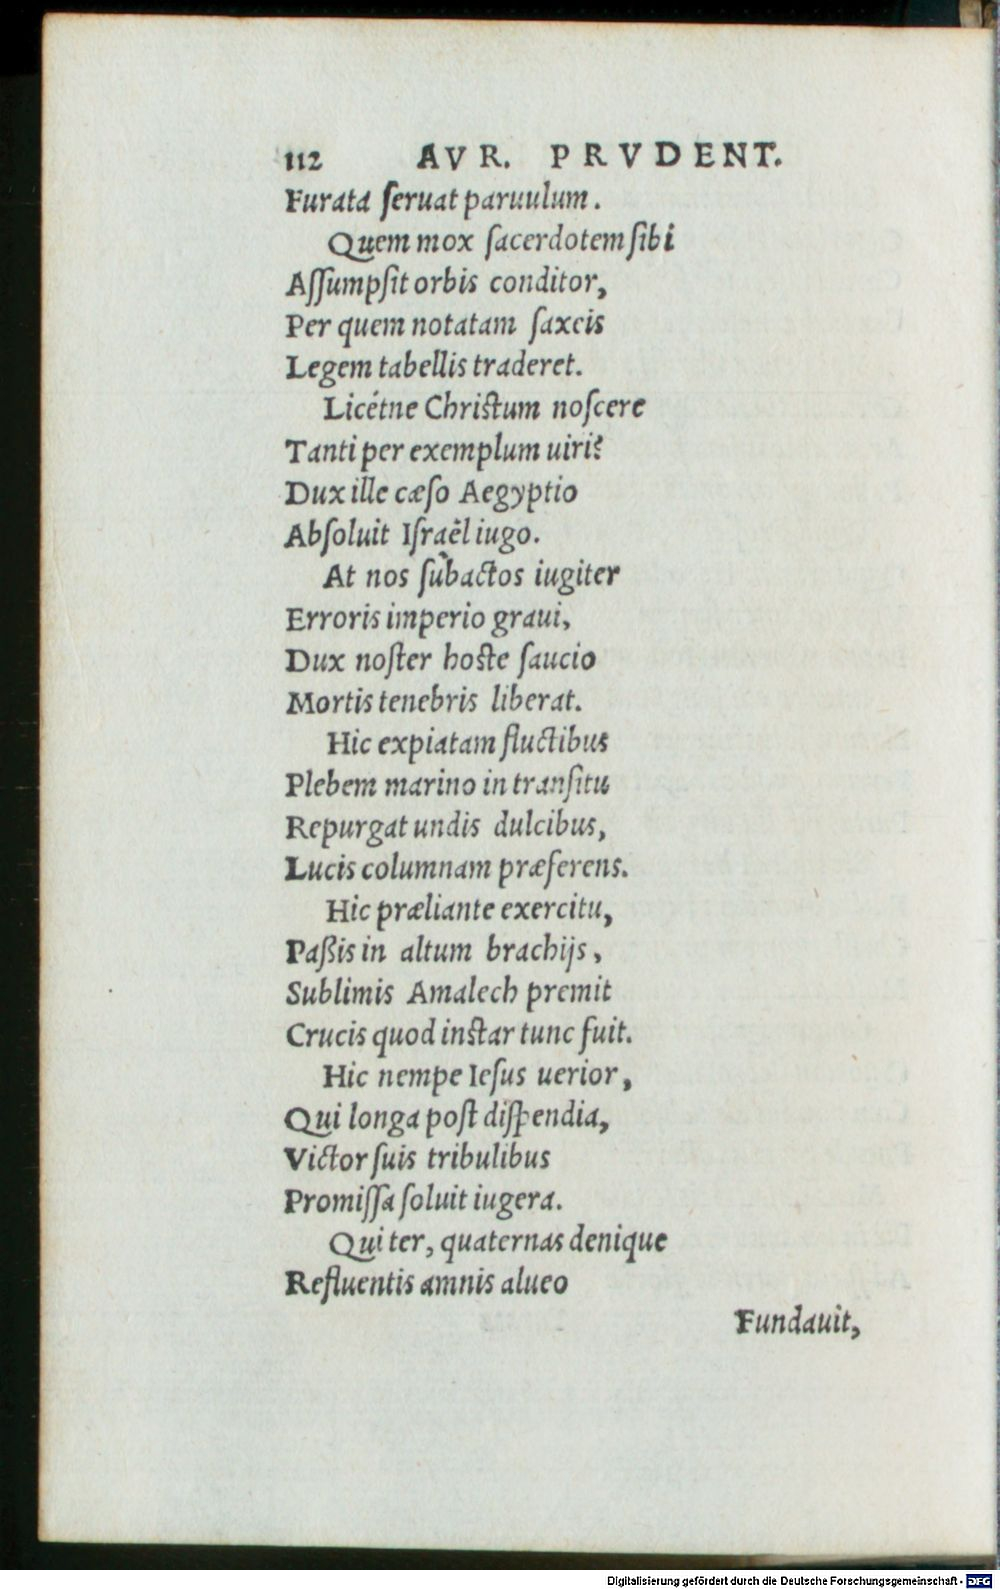 112 AVR. PRVDENT.
Furata ſeruat paruulum.
Quem mox ſacerdotem ſibi
Aſſumpſit orbis conditor,
Per quem notatam ſaxeis
Legem tabellis traderet.
Licétne Chriſtum noſcere
Tanti per exemplum uiri?
Dux ille cæſo Aegyptio
Abſoluit Iſraël iugo.
At nos ſubactos iugiter
Erroris imperio graui,
Dux noſter hoſte ſaucio
Mortis tenebris liberat.
Hic expiatam fluctibus
Plebem marino in tranſitu
Repurgat undis dulcibus,
Lucis columnam præferens.
Hic præliante exercitu,
Paßis in altum brachijs,
Sublimis Amalech premit
Crucis quod inſtar tunc fuit.
Hic nempe Ieſus uerior,
Qui longa poſt diſpendia,
Victor ſuis tribulibus
Promiſſa ſoluit iugera.
Qui ter, quaternas denique
Refluentis amnis alueo
Fundauit,
Digitalisierung gefördert durch die Deutsche Forschungsgemeinschaft - DFG